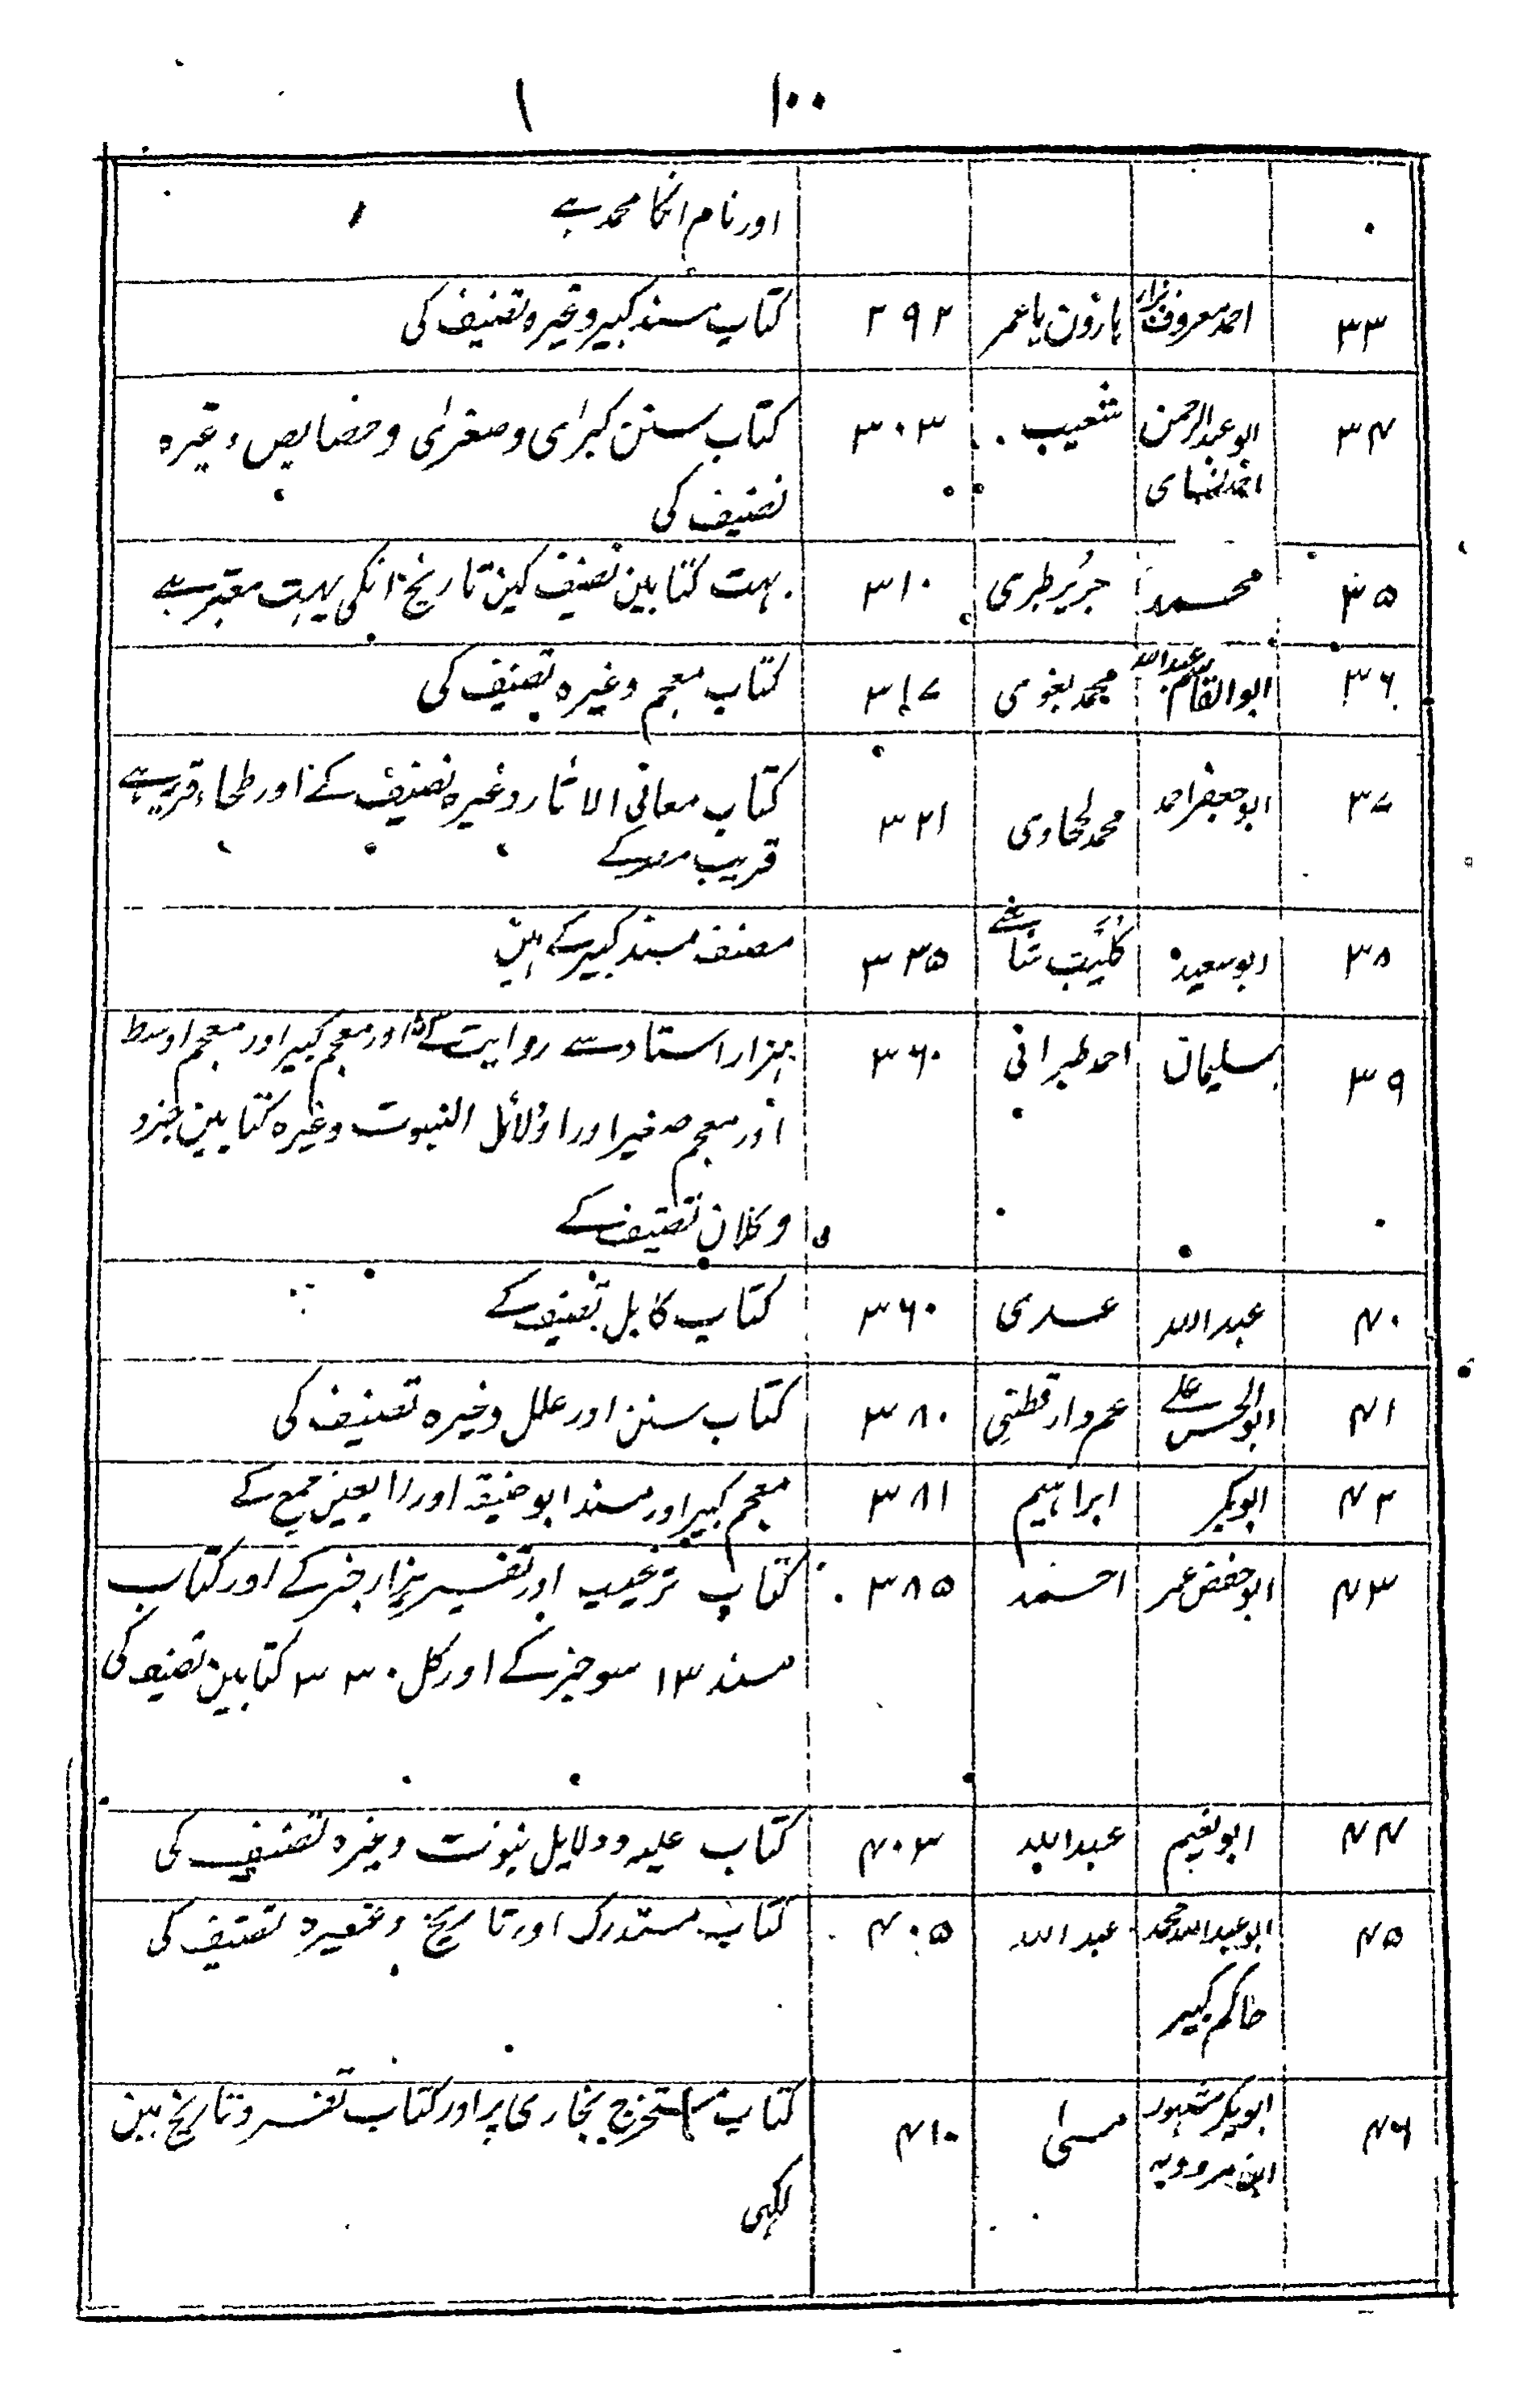 ۱۰۰
اور نام انکا محمد ہے
۳۳ احمد معروف بزار ہارون یا عمر ۲۹۲ کتاب مسند کبیر وغیرہ تصنیف کی
۳۴ ابو عبدالرحمن شعیب ۳۰۳ کتاب سنن کبرای و صغرای و خصایص وغیرہ
احمد نسای تصنیف کی
۳۵ محمد جریر طبری ۳۱۰ بہت کتابین تصنیف کین تاریخ انکی بہت معتبر ہے
۳۶ ابوالقاسم عبداللہ محمد بغوی ۳۱۷ کتاب معجم وغیرہ تصنیف کی
۳۷ ابو جعفر احمد محمد طحاوی ۳۲۱ کتاب معانی الاثار وغیرہ تصنیف کے اور طحاء قریہ ہے
قریب مصر کے
۳۸ ابو سعید کلیب شاشے ۳۳۵ مصنف مسند کبیر کے ہین
۳۹ سلیمان احمد طبرانی ۳۶۰ ہزار استاد سے روایت کے اور معجم کبیر اور معجم اوسط
اور معجم صغیر اور دلائل النبوت وغیرہ کتابین خرد
و کلان تصنیف کے
۴۰ عبداللہ عدی ۳۶۰ کتاب کامل تصنیف کے
۴۱ ابوالحسن علے عمر دارقطنی ۳۸۰ کتاب سنن اور علل وغیرہ تصنیف کی
۴۲ ابوبکر ابراہیم ۳۸۱ معجم کبیر اور مسند ابو حنیفہ اور اربعین جمع کے
۴۳ ابو حفص عمر احمد ۳۸۵ کتاب ترغیب اور تفسیر ہزار جز کے اور کتاب
مسند ۱۳ سو جز کے اور کل ۳۳۰ کتابین تصنیف کی
۴۴ ابو نعیم عبداللہ ۴۰۳ کتاب حلیہ و دلایل نبوت وغیرہ تصنیف کی
۴۵ ابو عبداللہ محمد عبداللہ ۴۰۵ کتاب مستدرک اور تاریخ وغیرہ تصنیف کی
حاکم کبیر
۴۶ ابوبکر مشہور موسی ۴۱۰ کتاب مستخرج بخاری پر اور کتاب تفسیر و تاریخ مین
ابن مردویہ لکہی